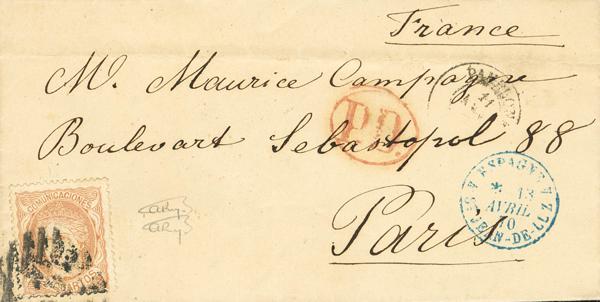 France
M. Maurice Campagne
Boulevart Sebastopol 88
Paris
P.D.
11
ESPAGNE
13
AVRIL
70
ST JEAN-DE-LUZ
COMUNICACIONES